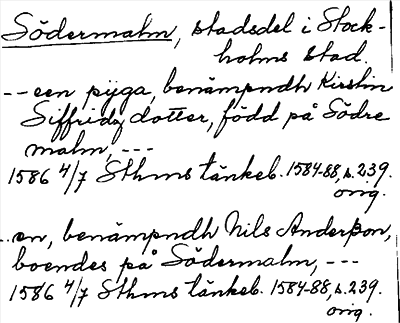 Södermalm, stadsdel i Stock-
holms stad.
--- een pijga, benämpndh Kirstin
Siffridz dotter, född på Södre
malm, ---
1586 4/7 Sthms tänkeb. 1584-88, s. 239.
orig.
... en, benämpndh Nils Anderßon,
boendes på Södermalm, ---
1586 4/7 Sthms tänkeb. 1584-88, s. 239.
orig.